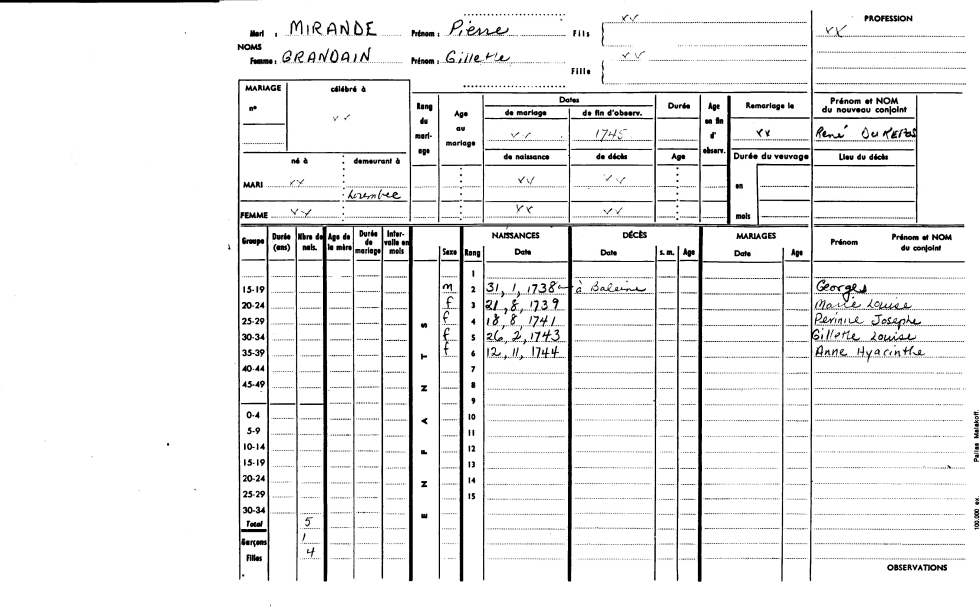 Mari : MIRANDE Prénom : Pierre Fils vv PROFESSION
vv
NOMS
Femme : GRANDAIN Prénom : Gillette Fille vv
MARIAGE célébré à
n° vv
Rang du mari-age
Age au mariage
Dates
de mariage de fin d'observ.
vv 1745
Durée
Age en fin d'observ.
Remariage le
vv
Prénom et NOM du nouveau conjoint
René DuREPOS
né à demeurant à
de naissance de décès Age Durée du veuvage Lieu du décès
MARI vv Lorembec vv vv en
FEMME vv vv vv mois
Groupe Durée (ans) Nbre de nais. Age de la mère Durée de mariage Inter-valle en mois ENFANTS Sexe Rang NAISSANCES Date DÉCÈS Date s. m. Age MARIAGES Date Age Prénom Prénom et NOM du conjoint
1
15-19 m 2 31, 1, 1738 à Baleine Georges
20-24 f 3 21, 8, 1739 Marie Louise
25-29 f 4 18, 8, 1741 Perinne Josephe
30-34 f 5 26, 2, 1743 Gillette Louise
35-39 f 6 12, 11, 1744 Anne Hyacinthe
40-44 7
45-49 8
9
0-4 10
5-9 11
10-14 12
15-19 13
20-24 14
25-29 15
30-34
Total 5
Garçons 1
Filles 4
OBSERVATIONS
100.000 ex. Pallas Malakoff.